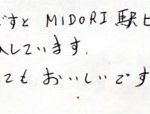 ですと MIDORI 駅ビ
入しています.
てもおいしいです